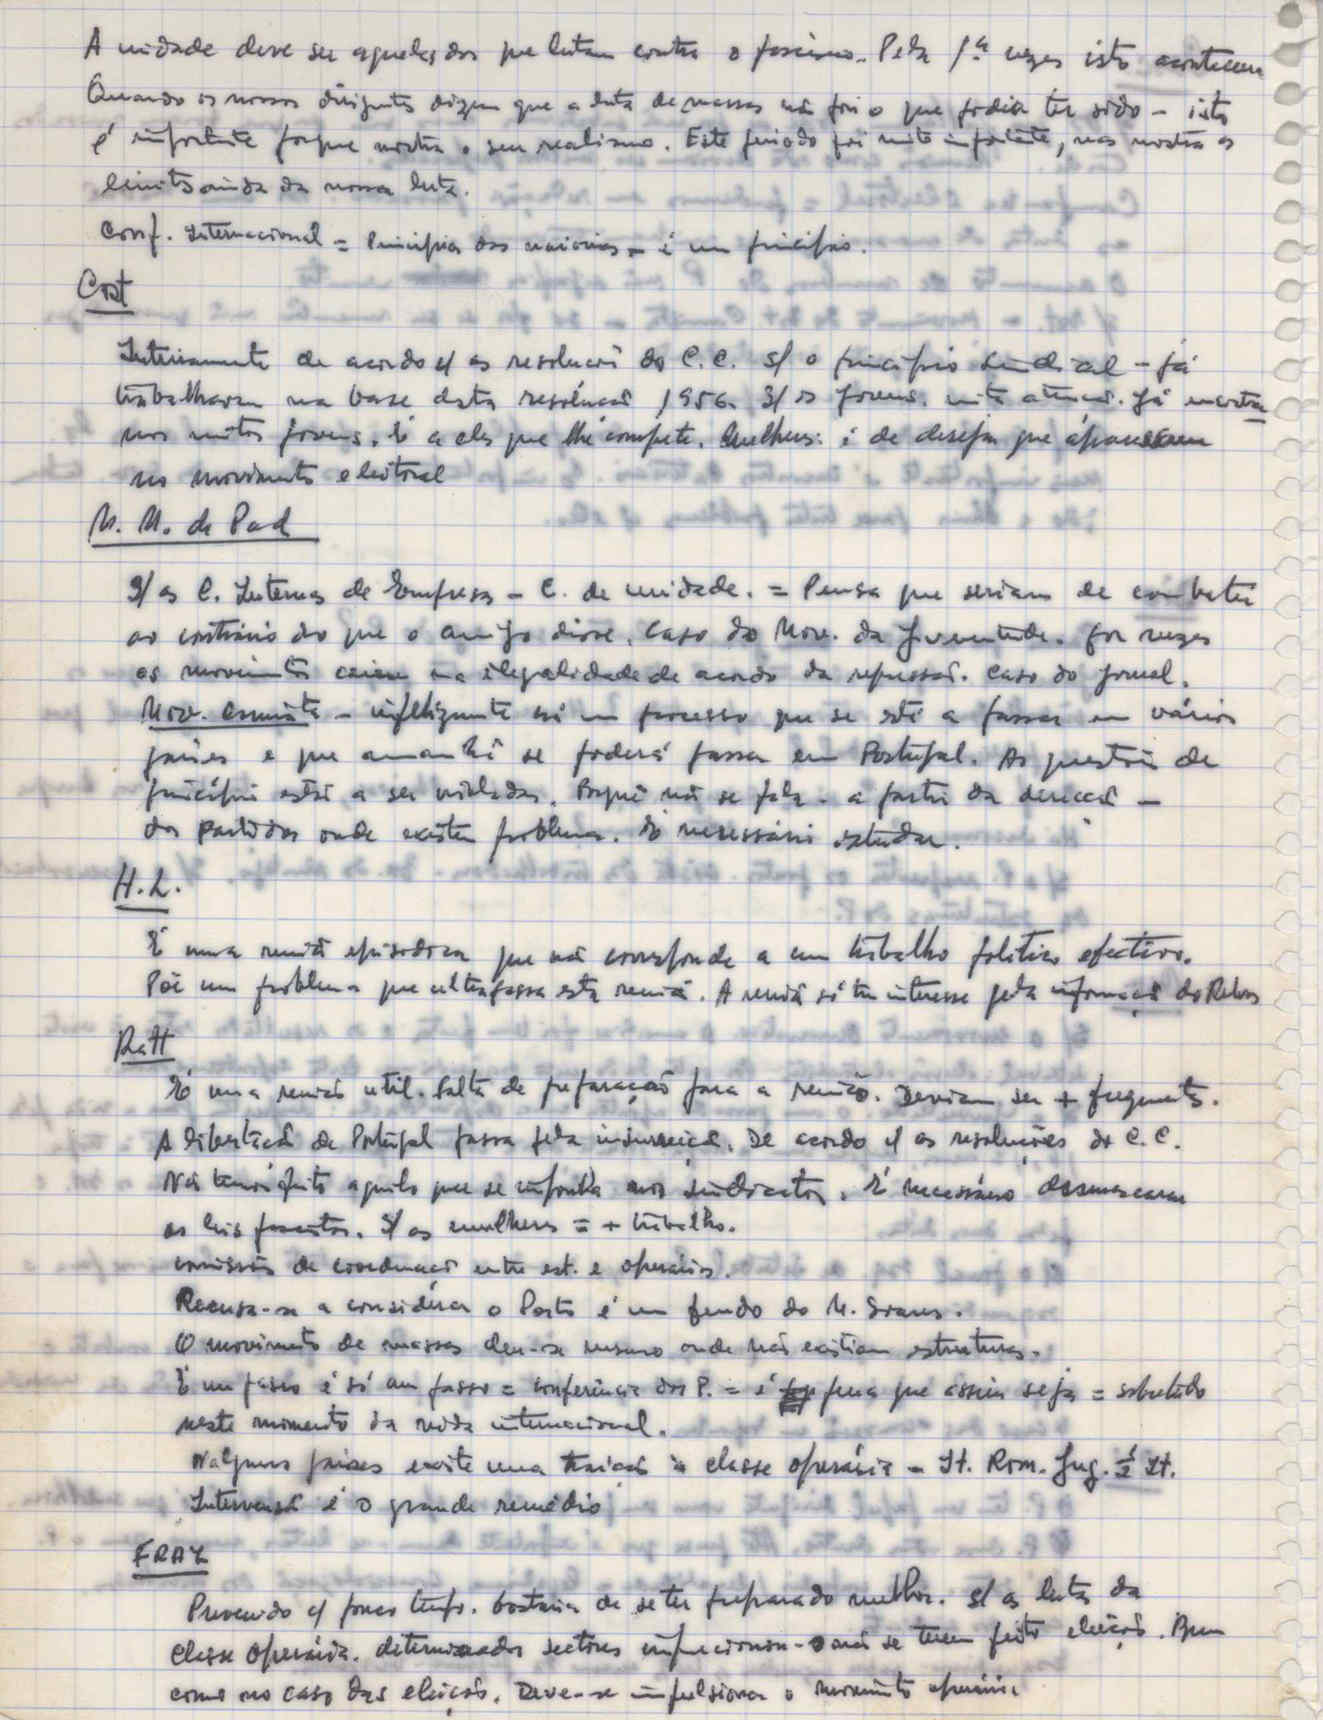 A unidade deve ser aqueles dos que lutam contra o fascismo. Pela 1ª vezes isto aconteceu
Quando os nossos dirigentes dizem que a luta de massas não foi o que podia ter sido - isto
é importante porque mostra o seu realismo. Este periodo foi muito importante, mas mostra os
limites ainda da nossa luta.
Conf. Internacional = Principios das maiorias - é um principio.
Cost
Inteiramente de acordo c/ as resoluções do C.C. s/ o principio sindical - já
trabalharam na base desta resolução 1956. S/ os jovens. muita atenção. Já encontra
mos muitos jovens. É a eles que lhe compete. Mulheres: é de desejar que apareçam
no movimento eleitoral
M. M. de Pad
S/ as C. Internas de Empresa - C. de unidade. = Pensa que seriam de combater
ao contrário do que o amigo disse. Caso do Mov. da Juventude. Por vezes
os movimentos caiem na ilegalidade de acordo da repressão. Caso do jornal.
Mov. Comunista - infelizmente há um processo que se está a passar em vários
países e que amanhã se poderá passar em Portugal. As questões de
principio estão a ser violadas. Porquê não se fala - a partir da direcção -
dos partidos onde existem problemas. É necessário estudar.
H. L.
É uma reunião episodica que não corresponde a um trabalho politico efectivo.
Põe um problema que ultrapassa esta reunião. A reunião só tem interesse pela informação do
Ratt
É uma reunião util. Falta de preparação para a reunião. Deviam ser + frequentes.
A libertação de Portugal passa pela insurreição. De acordo c/ as resoluções do C.C.
Nós temos feito aquilo que se impunha nos sindicatos. É necessário desmascarar
as leis fascistas. S/ as mulheres = + trabalho.
comissões de coordenação entre est. e operários.
Recusa-se a considerar o Porto é um feudo do M. Soares.
O movimento de massas deu-se mesmo onde não existiam estruturas.
É um passo é só um passo = conferência dos P. = é pena que assim seja = sobretudo
neste momento da vida internacional.
Nalguns países existe uma traição à classe operária - It. Rom. Jug. It.
Intervenção é o grande remédio
FRAZ
Prevenido c/ pouco tempo. Gostaria de se ter preparado melhor. S/ as lutas da
classe operária. determinados sectores impressionou-o não se terem feito eleições. Bem
como no caso das eleições. Deve-se impulsionar o movimento operário